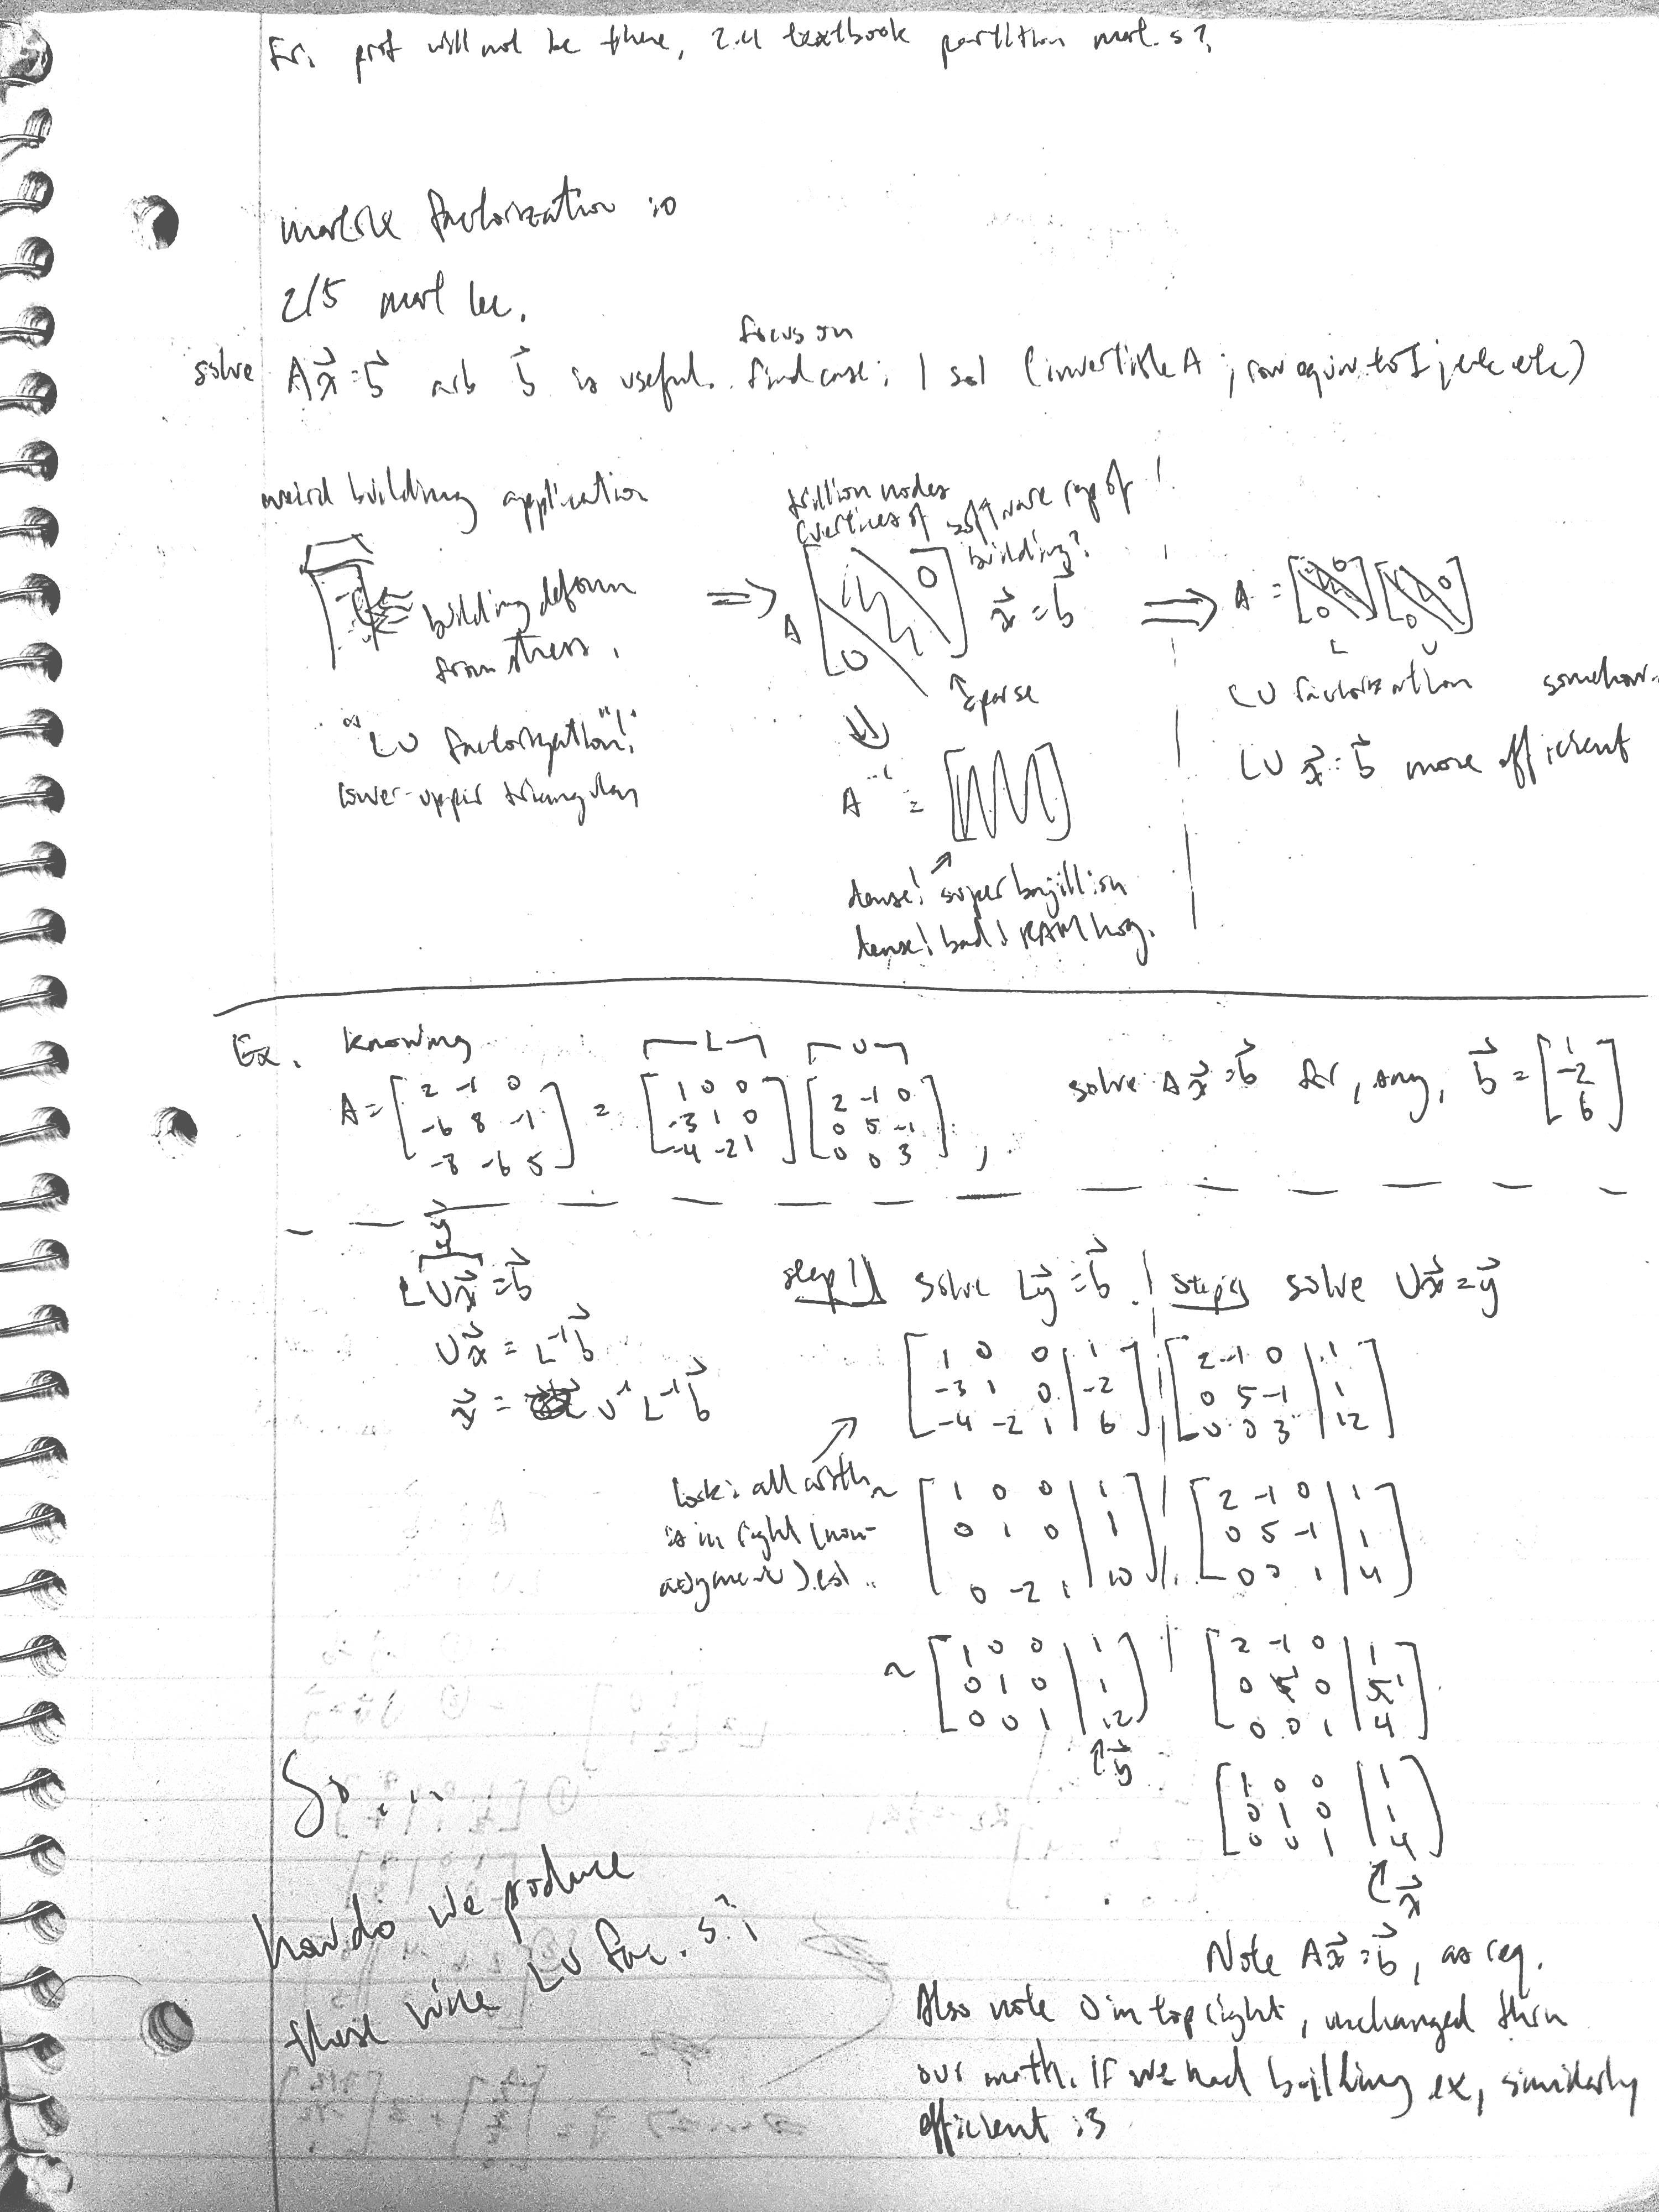 Fri. prof will not be there, 2.4 textbook partition mat.s?
matrix factorization :o
2/5 mat lec.
solve Ax⃗=b⃗ arb b⃗ is useful. focus on find case: 1 sol (invertible A; row equiv to I; etc etc)
weird building application
building deform
from stress.
"LU factorization"!
lower-upper triangular
trillion nodes
(vertices of software rep of
building?
!
⇒ A [ 0 0 ] x⃗ = b⃗
↑ sparse
A⁻¹ = [ ]
dense! super bajillion
dense! bad! RAM hog.
⇒ A = [ 0 0 ] [ 0 0 ]
L U
LU factorization somehow.
LU x⃗ = b⃗ more efficient
Ex. Knowing
L U
A = [ 2 -1 0 ] = [ 1 0 0 ] [ 2 -1 0 ] , solve Ax⃗=b⃗ for, say, b⃗ = [ 1 ]
[ -6 8 -1 ] [ -3 1 0 ] [ 0 5 -1 ] [ -2 ]
[ -8 -6 5 ] [ -4 -2 1 ] [ 0 0 3 ] [ 6 ]
y⃗
LUx⃗ = b⃗
Ux⃗ = L⁻¹b⃗
x⃗ = U⁻¹L⁻¹b⃗
step 1) solve Ly⃗ = b⃗.
[ 1 0 0 | 1 ]
[ -3 1 0 | -2 ]
[ -4 -2 1 | 6 ]
look: all arith
is in right (non-
augmented) col
~ [ 1 0 0 | 1 ]
[ 0 1 0 | 1 ]
[ 0 -2 1 | 10 ]
~ [ 1 0 0 | 1 ]
[ 0 1 0 | 1 ]
[ 0 0 1 | 12 ]
↑ y⃗
step 2) solve Ux⃗ = y⃗
[ 2 -1 0 | 1 ]
[ 0 5 -1 | 1 ]
[ 0 0 3 | 12 ]
[ 2 -1 0 | 1 ]
[ 0 5 -1 | 1 ]
[ 0 0 1 | 4 ]
[ 2 -1 0 | 1 ]
[ 0 1 0 | 1 ]
[ 0 0 1 | 4 ]
[ 1 0 0 | 1 ]
[ 0 1 0 | 1 ]
[ 0 0 1 | 4 ]
↑ x⃗
So...
how do we produce
these nice LU fac.s?
Note Ax⃗ = b⃗, as req.
Also note 0 in top right, unchanged thru
our math. If we had building ex, similarly
efficient :3